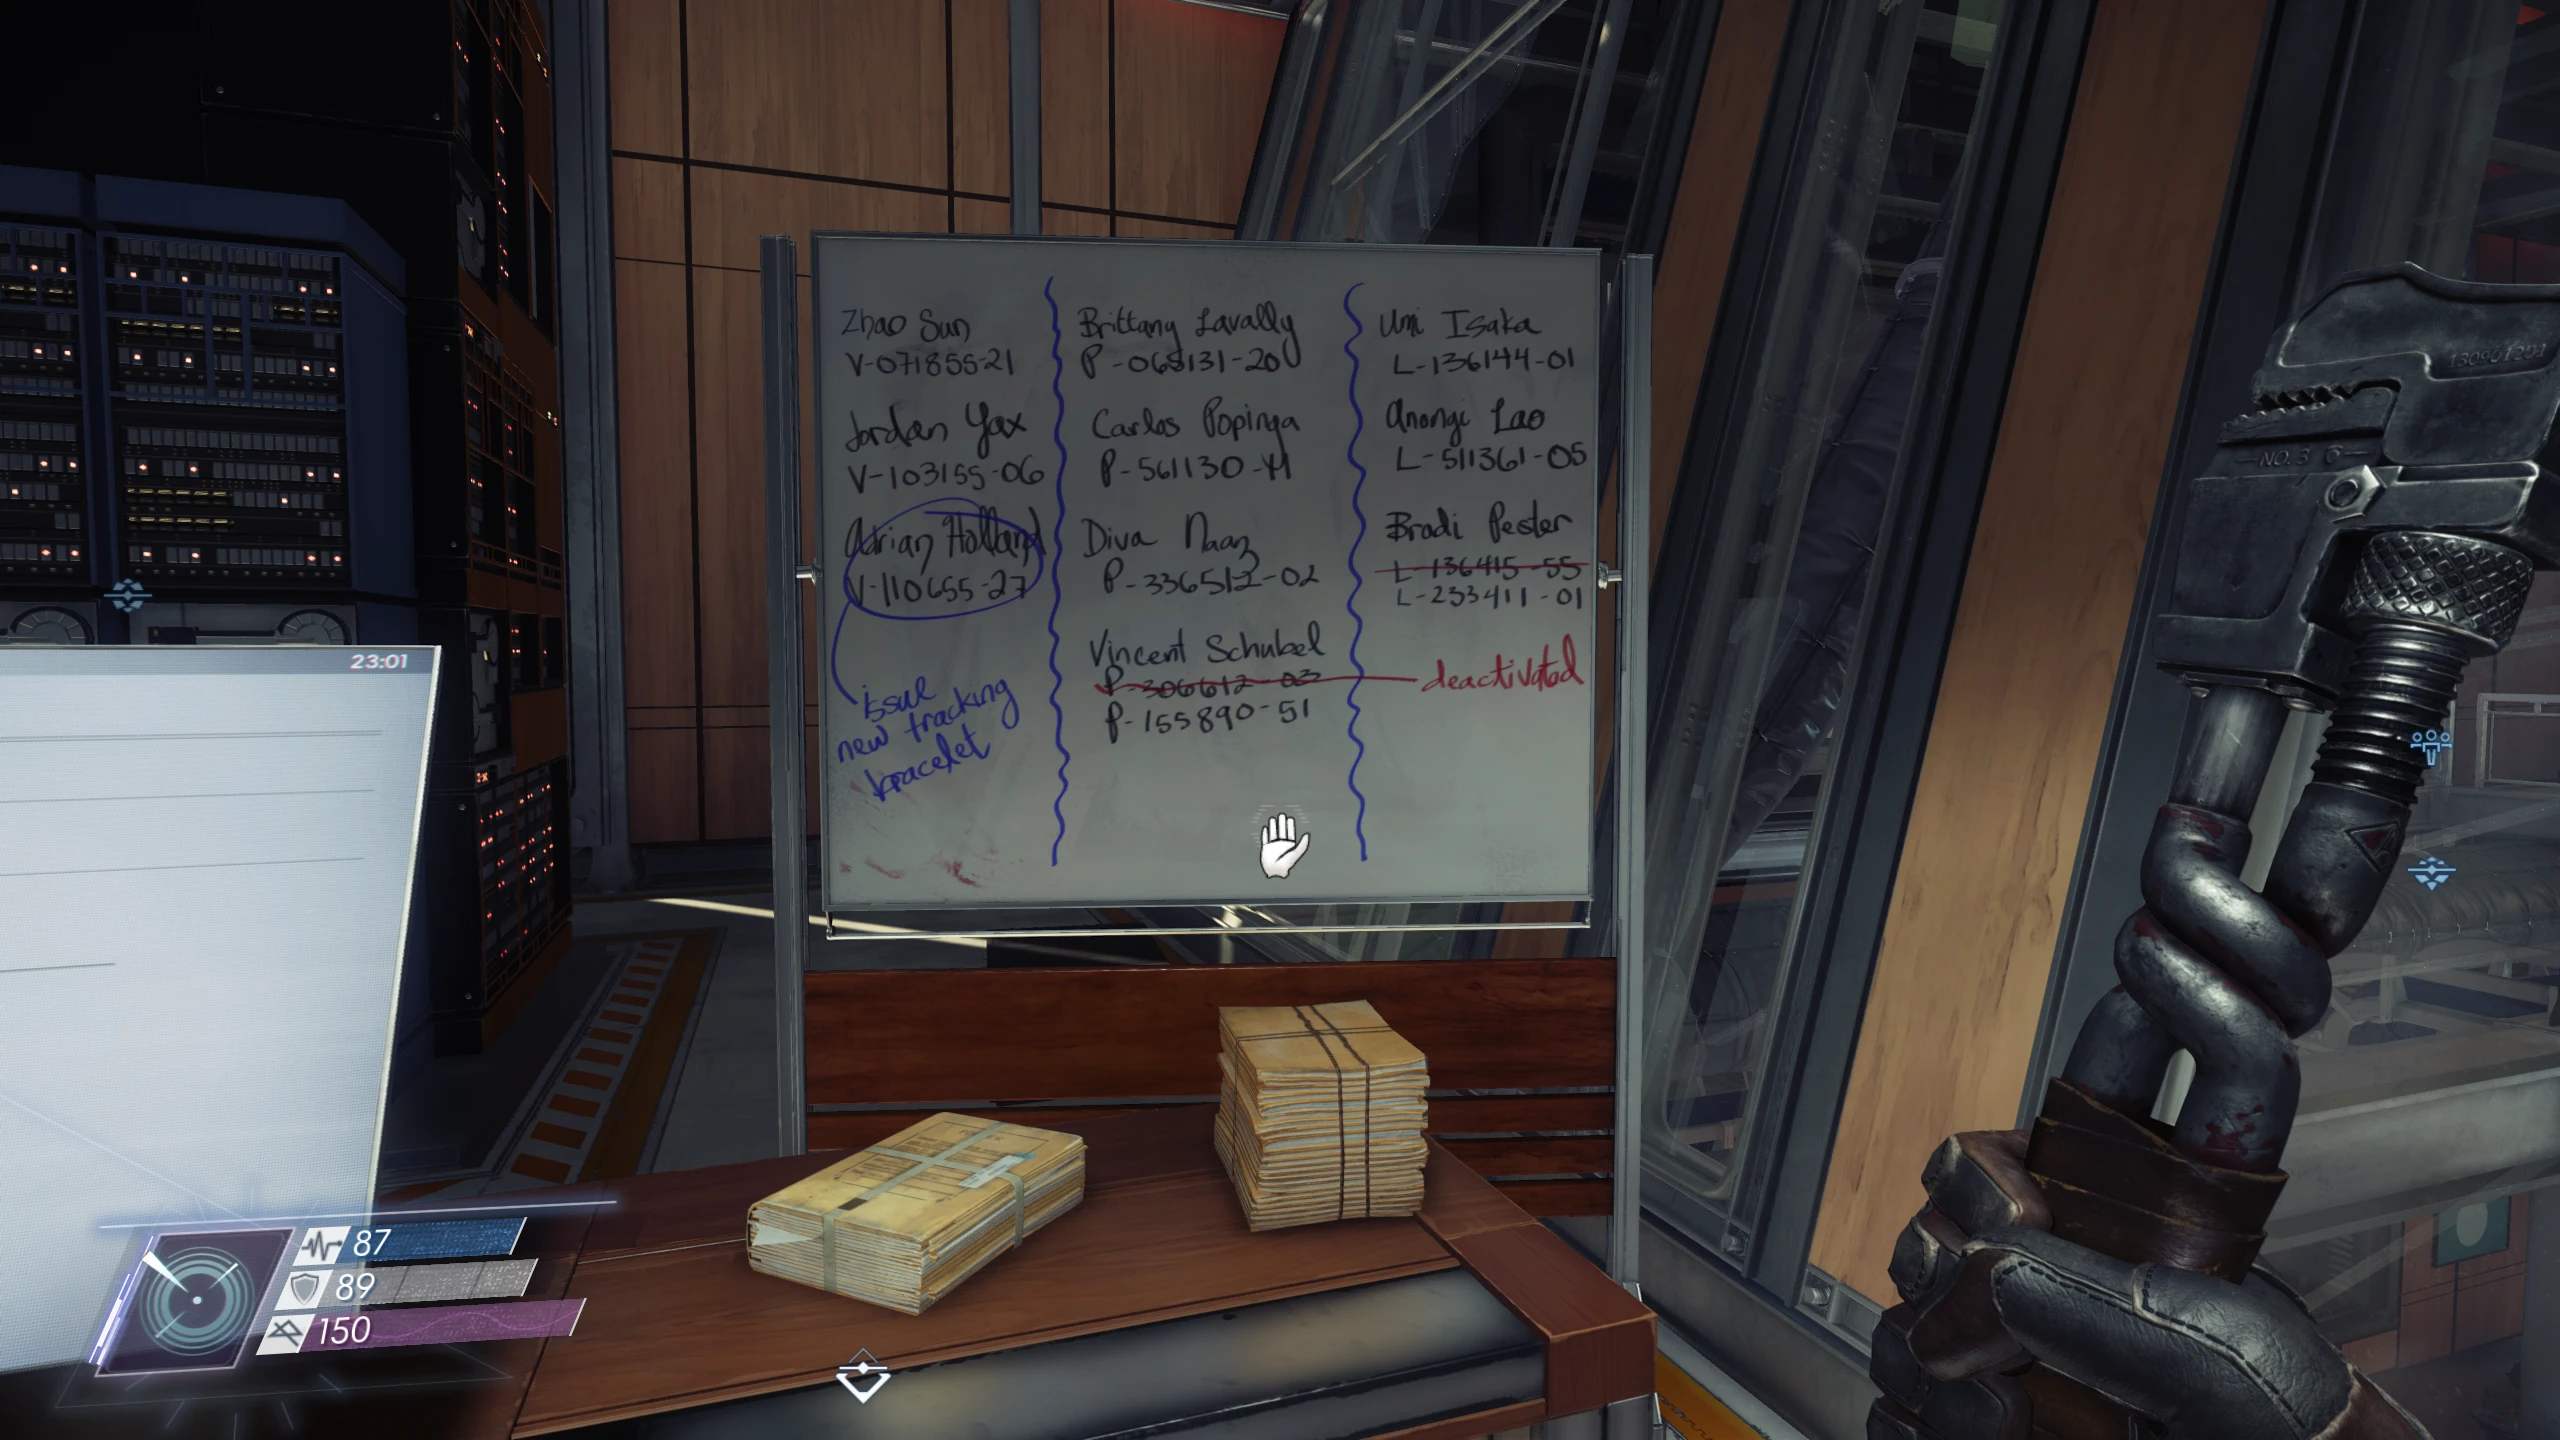 Zhao Sun
V-071855-21
Jordan Yax
V-103155-06
Adrian Holland
V-110655-27
issue
new tracking
bracelet
Brittany Lavally
P-068131-20
Carlos Popinga
P-561130-41
Diva Naaz
P-336512-02
Vincent Schubel
P-306612-03
P-155890-51
Umi Isaka
L-136144-01
Anongi Lao
L-511361-05
Bradi Pester
L-136415-55
L-233411-01
deactivated
23:01
NO. 3 C
87
89
150